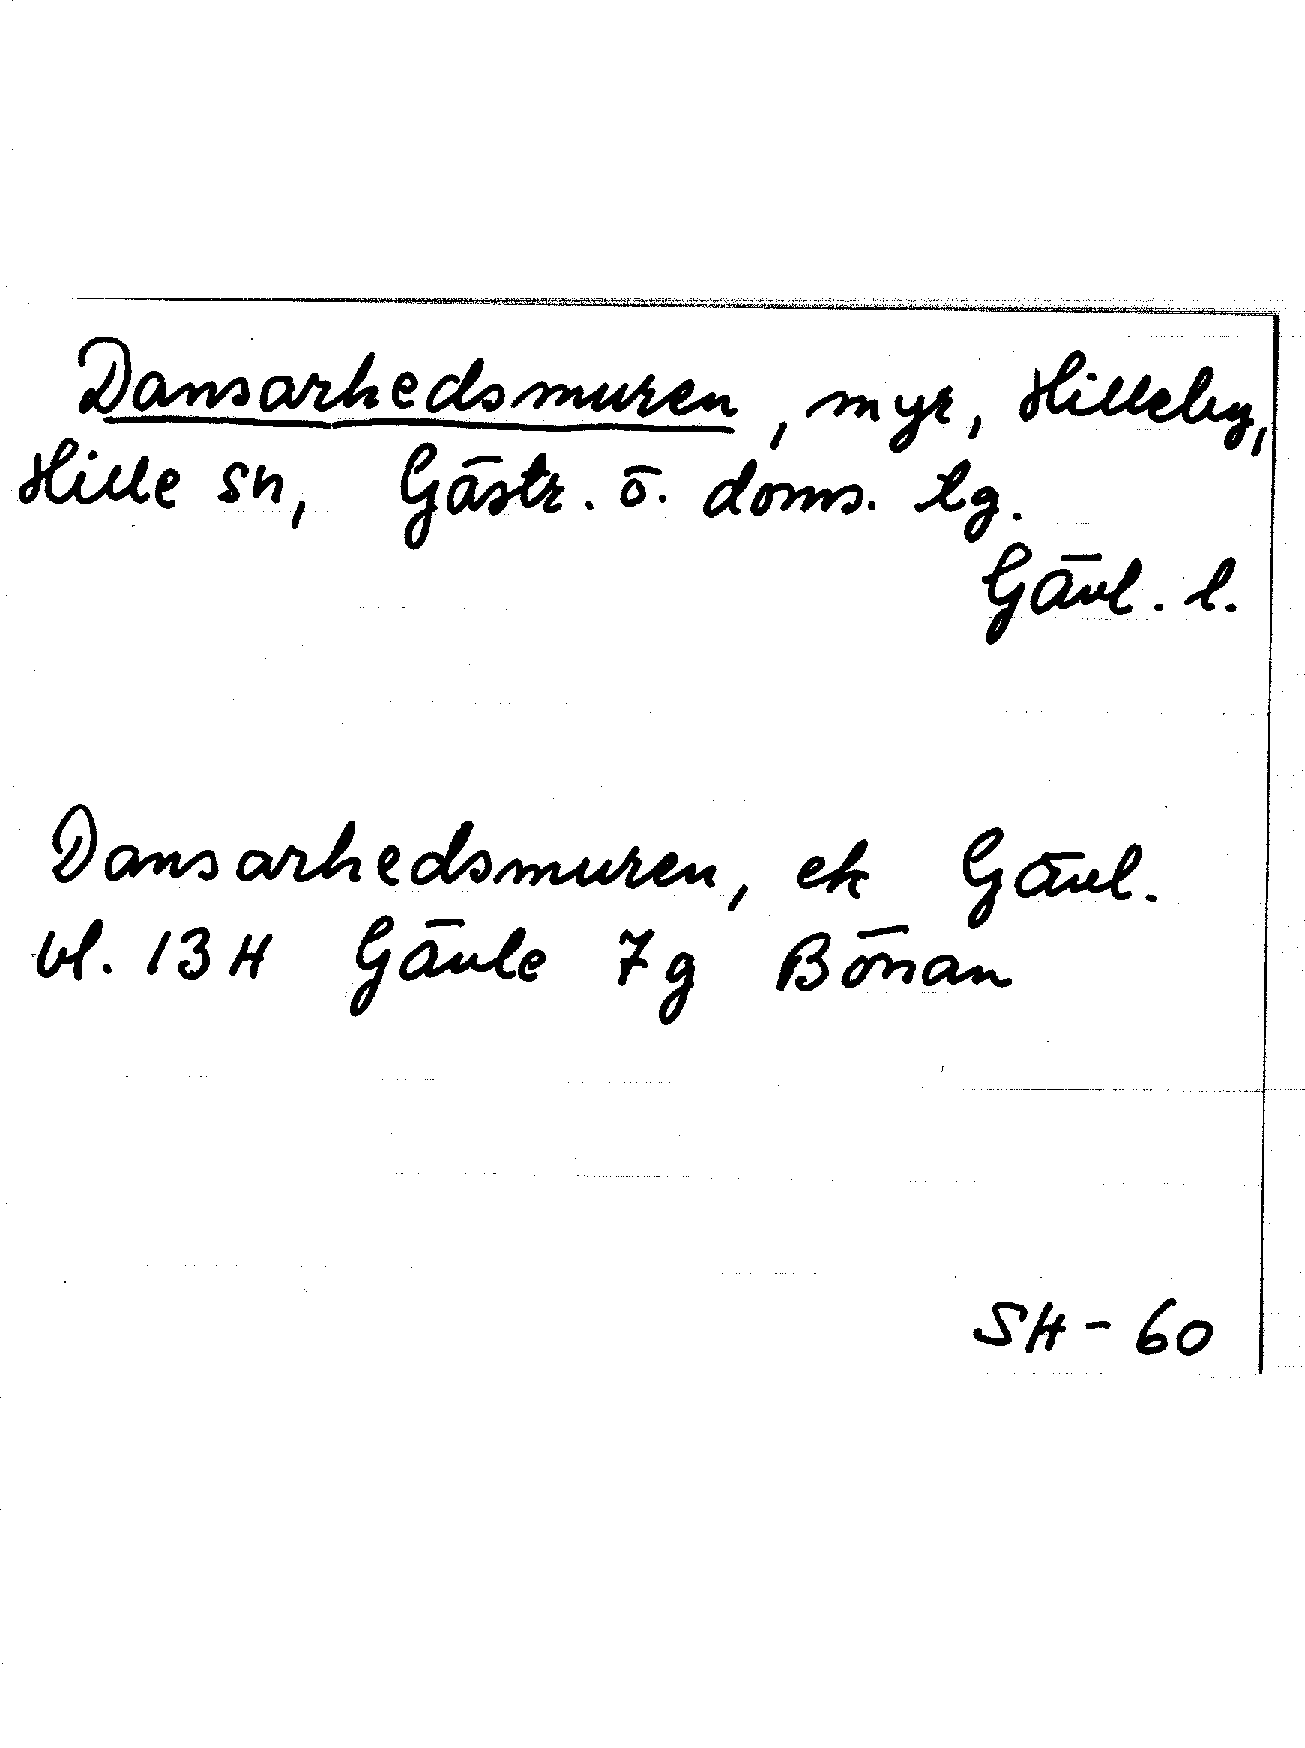 Dansarhedsmuren, myr, Hilleby,
Hille sn, Gästr. ö. doms. tg.
Gävl. l.
Dansarhedsmuren, ek Gävl.
bl. 13 H Gävle 7 g Bönan
SH - 60